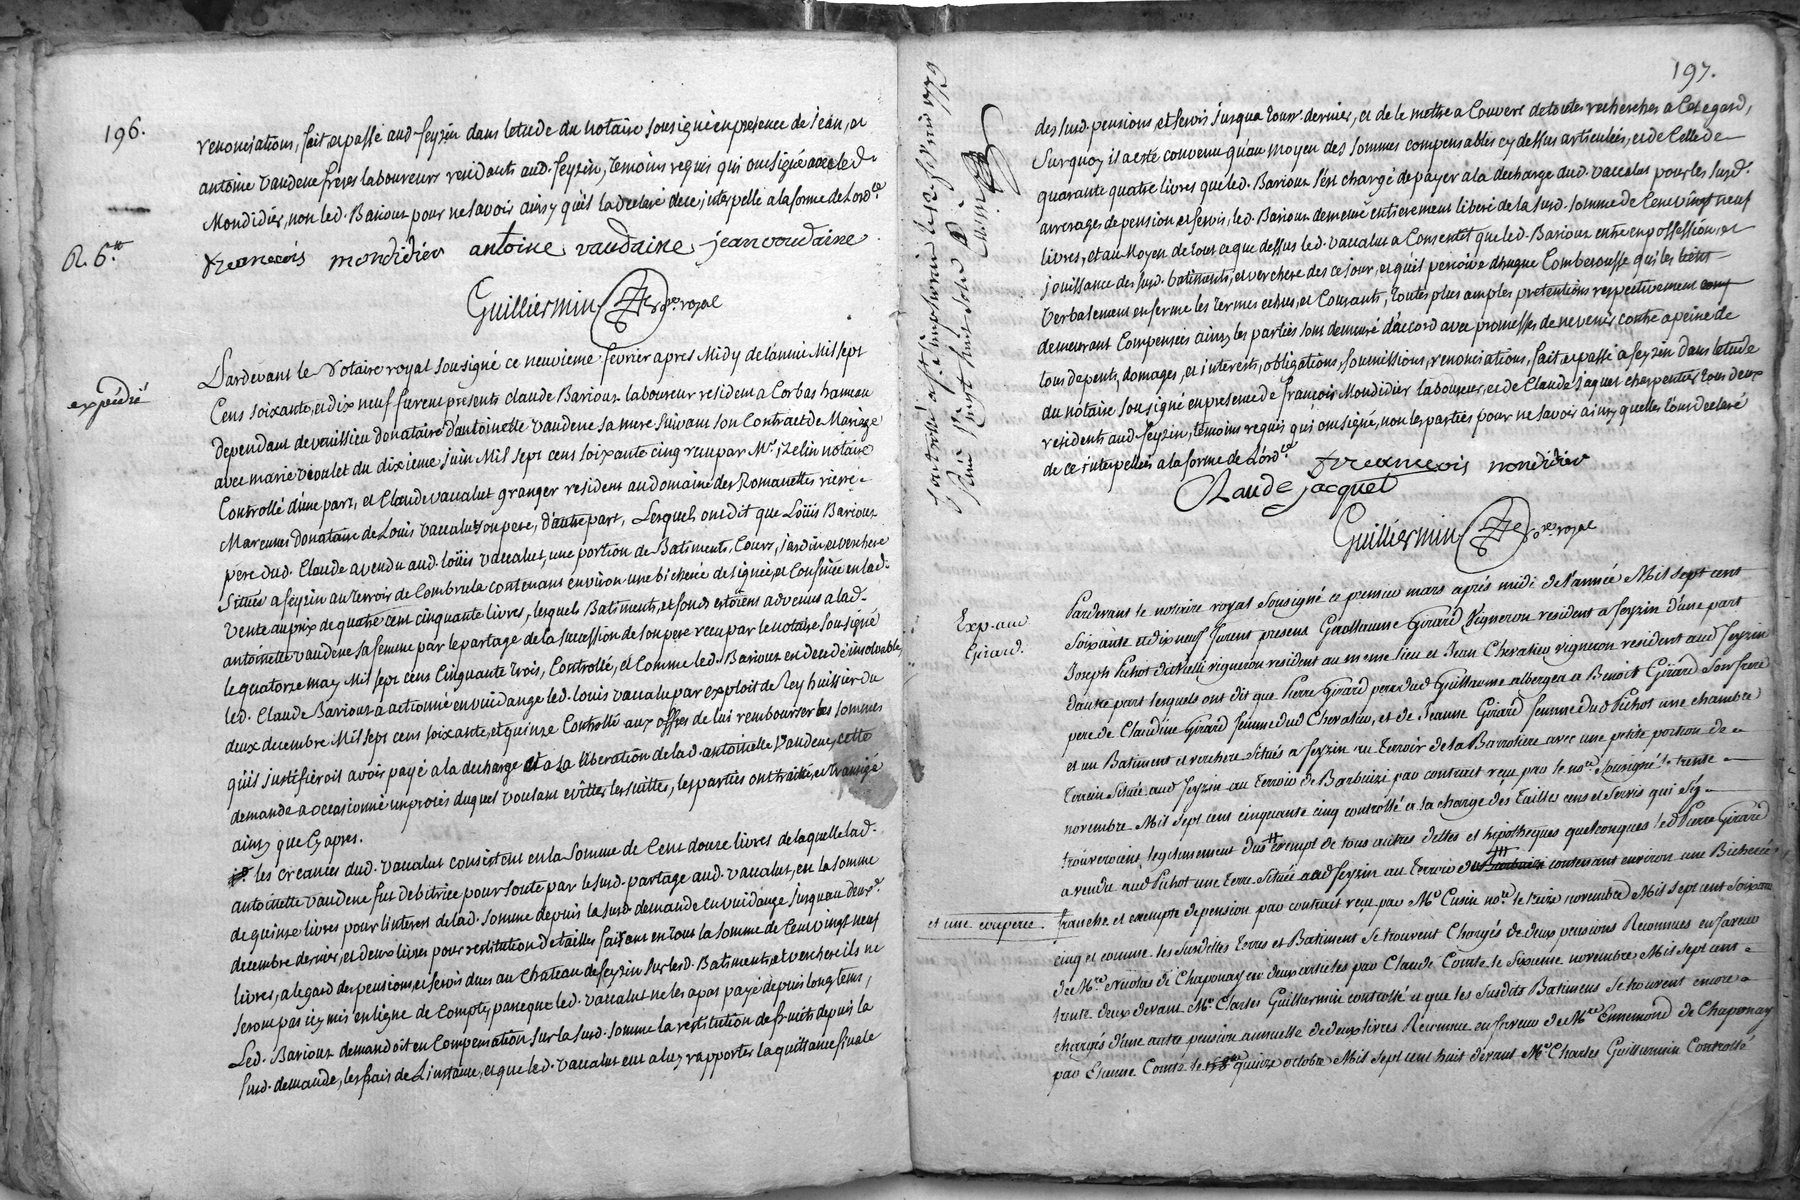 196.
renonciations, fait et passé aud. feyzin dans letude du notaire sousigné en presence de jean, et
antoine vaudene freres laboureurs residents aud. feyzin, temoins requis qui ont signé avec led.
Mondidier, non led. Barioux pour ne savoir ainsy qu'il la declaré de ce interpellé a la forme de Lord.ce
R. 6.tt
francois mondidier antoine vaudaine jean voudaine
Guilliermin no.re royal
expédié
Pardevant le Notaire royal sousigné ce neuvieme fevrier apres Midy de lannée Mil sept
Cens soixante, et dix neuf furent presents claude Barioux laboureur resident a Corbas hameau
dependant de venissieu donataire d'antoinette vaudene sa mere suivant son Contract de Mariage
avec marie violet du dixieme juin Mil sept cens soixante cinq recu par M.e izelin notaire
Controllé d'une part, et Claude vacalut granger resident au domaine des Romanettes riere
Marennes donataire de Louis vacalut son pere, d'autre part, Lesquels ont dit que Loüis Barioux
pere dud. Claude a vendu aud. loüis vacalut, une portion de Batiments, Cour, jardin et verchere
Situés a feyzin au terroir de Combrula contenant environ une bicherée designée, et Confinée en lad.
Vente au prix de quatre cent cinquante livres, lesquels Batiments, et fonds estoient advenus a lad.
antoinette vaudene sa femme par le partage de la succession de son pere recu par le notaire sousigné
le quatorze may Mil sept cens Cinquante trois, Controllé, et Comme led. Barioux en decedé insolvable,
led. Claude Barioux a actionné en vuidange led. louis vacalut par exploit de Rey huissier du
deux decembre Mil sept cens soixante, et quinze Controllé aux offres de lui rembourser les sommes
qu'il justifieroit avoir payé a la decharge et a la liberation de lad. antoinette Vaudene, cette
demande a occasionné un procés duquel voulant eviter les suittes, les parties ont traité, et transigé
ainsy que Cy apres.
les creances dud. vacalut consistent en la Somme de Cent douze livres de laquelle lad.
antoinette vaudene fut debitrice pour soute par le sud. partage aud. vacalut, en la somme
de quinze livres pour l'interest de lad. somme depuis la sud. demande en vuidange jusquau deux
decembre dernier, et deux livres pour restitution de tailles faisant en tout la somme de Cent vingt neuf
livres, a legard des pensions, et servis dues au Chateau de feyzin sur lesd. Batiments, et verchere ils ne
seront pas icy mis en ligne de Compte, parce que led. vacalut ne les a pas payé depuis longtems,
Led. Barioux demandoit en Compensation sur la sud. somme la restitution de fruits depuis la
sud. demande, les frais de L'instance, et que led. vacalut eut a luy rapporter la quittance finale
197.
des sud. pensions et servis jusqua jour dernier, et de le mettre a Couvert de toutes recherches a Cet egard,
Surquoy il a esté convenu qu'au moyen des sommes compensables cy dessus articulées, et de Celle de
quarante quatre livres que led. Barioux s'est chargé de payer a la decharge dud. vacalut pour les sud.
arrerages de pension et servis, led. Barioux demeure entierement liberé de la sud. somme de Cent vingt neuf
livres, et au Moyen de tout ce que dessus led. vacalut a Consentit que led. Barioux entre en possession, et
jouissance des sud. batiments, et verchere des ce jour, et qu'il percoive d'hugue Comberousse qui les tient
Verbalement en ferme les termes echus, et Courants, toutes plus amples pretentions respectivement
demeurant Compensées ainsy les parties sont demeuré d'accord avec promesses de ne venir contre a peine de
tous depents, domages, et interets, obligations, soumissions, renonciations, fait et passé a feyzin dans letude
du notaire sousigné en presence de françois Mondidier laboureur, et de Claude jaquet charpentier tous deux
residents aud. feyzin, temoins requis qui ont signé, non les parties pour ne savoir ainsy quelles l'ont declaré
de ce interpellées a la forme de Lord.ce francois mondidier
Claude jacquet
Guilliermin no.re royal
Exp. aud
Girard.
Pardevant le notaire royal Sousigné ce premier mars aprés midi de l'année Mil Sept cent
Soixante et dix neuf furent presens Guillaume Girard Vigneron resident a feyzin d'une part
Joseph Pichot dit vigneron resident au meme lieu et Jean Chevalier vigneron resident aud. feyzin
d'autre part lesquels ont dit que Pierre Girard pere dud Guillaume albergea a Benoit Girard Son frere
pere de Claudine Girard femme dud Chevalier, et de Jeanne Girard femme dud Pichot une chambre
et un Batiment et verchere Situés a feyzin au Terroir de la Barrotiere avec une petite portion de
terrein Située aud feyzin au Terroir de Barbuizi par contrait reçu par le no.re Sousigné le trente
novembre Mil sept cent cinquante cinq controllé a la charge des Tailles cens et Servis qui s'y
trouveroient, legitimement dus et exempt de tous autres dettes et hipotheques quelconques led Pierre Girard
a vendu aud Pichot une Terre Située aud feyzin au Terroir du contenant environ une Bicherée
et une couperée.
franche et exempte de pension par contrait reçu par M.e Cusin no.re le treize novembre Mil sept cent Soixante
cinq et comme les Susdittes Terres et Batiment Se trouvent Chargés de deux pensions Reconnues en faveur
de M.re Nicolas de Chaponay en deux articles par Claude Comte le Sixieme novembre Mil Sept cent
trente deux devant M.e Charles Guilliermin controllé et que les Susdits Batimens Se trouvent encore
chargés d'une autre pension annuelle de deux livres Reconnue en faveur de M.re Ennemond de Chaponay
par Etienne Comte le quinze octobre Mil Sept cent huit devant M.e Charles Guilliermin Controllé